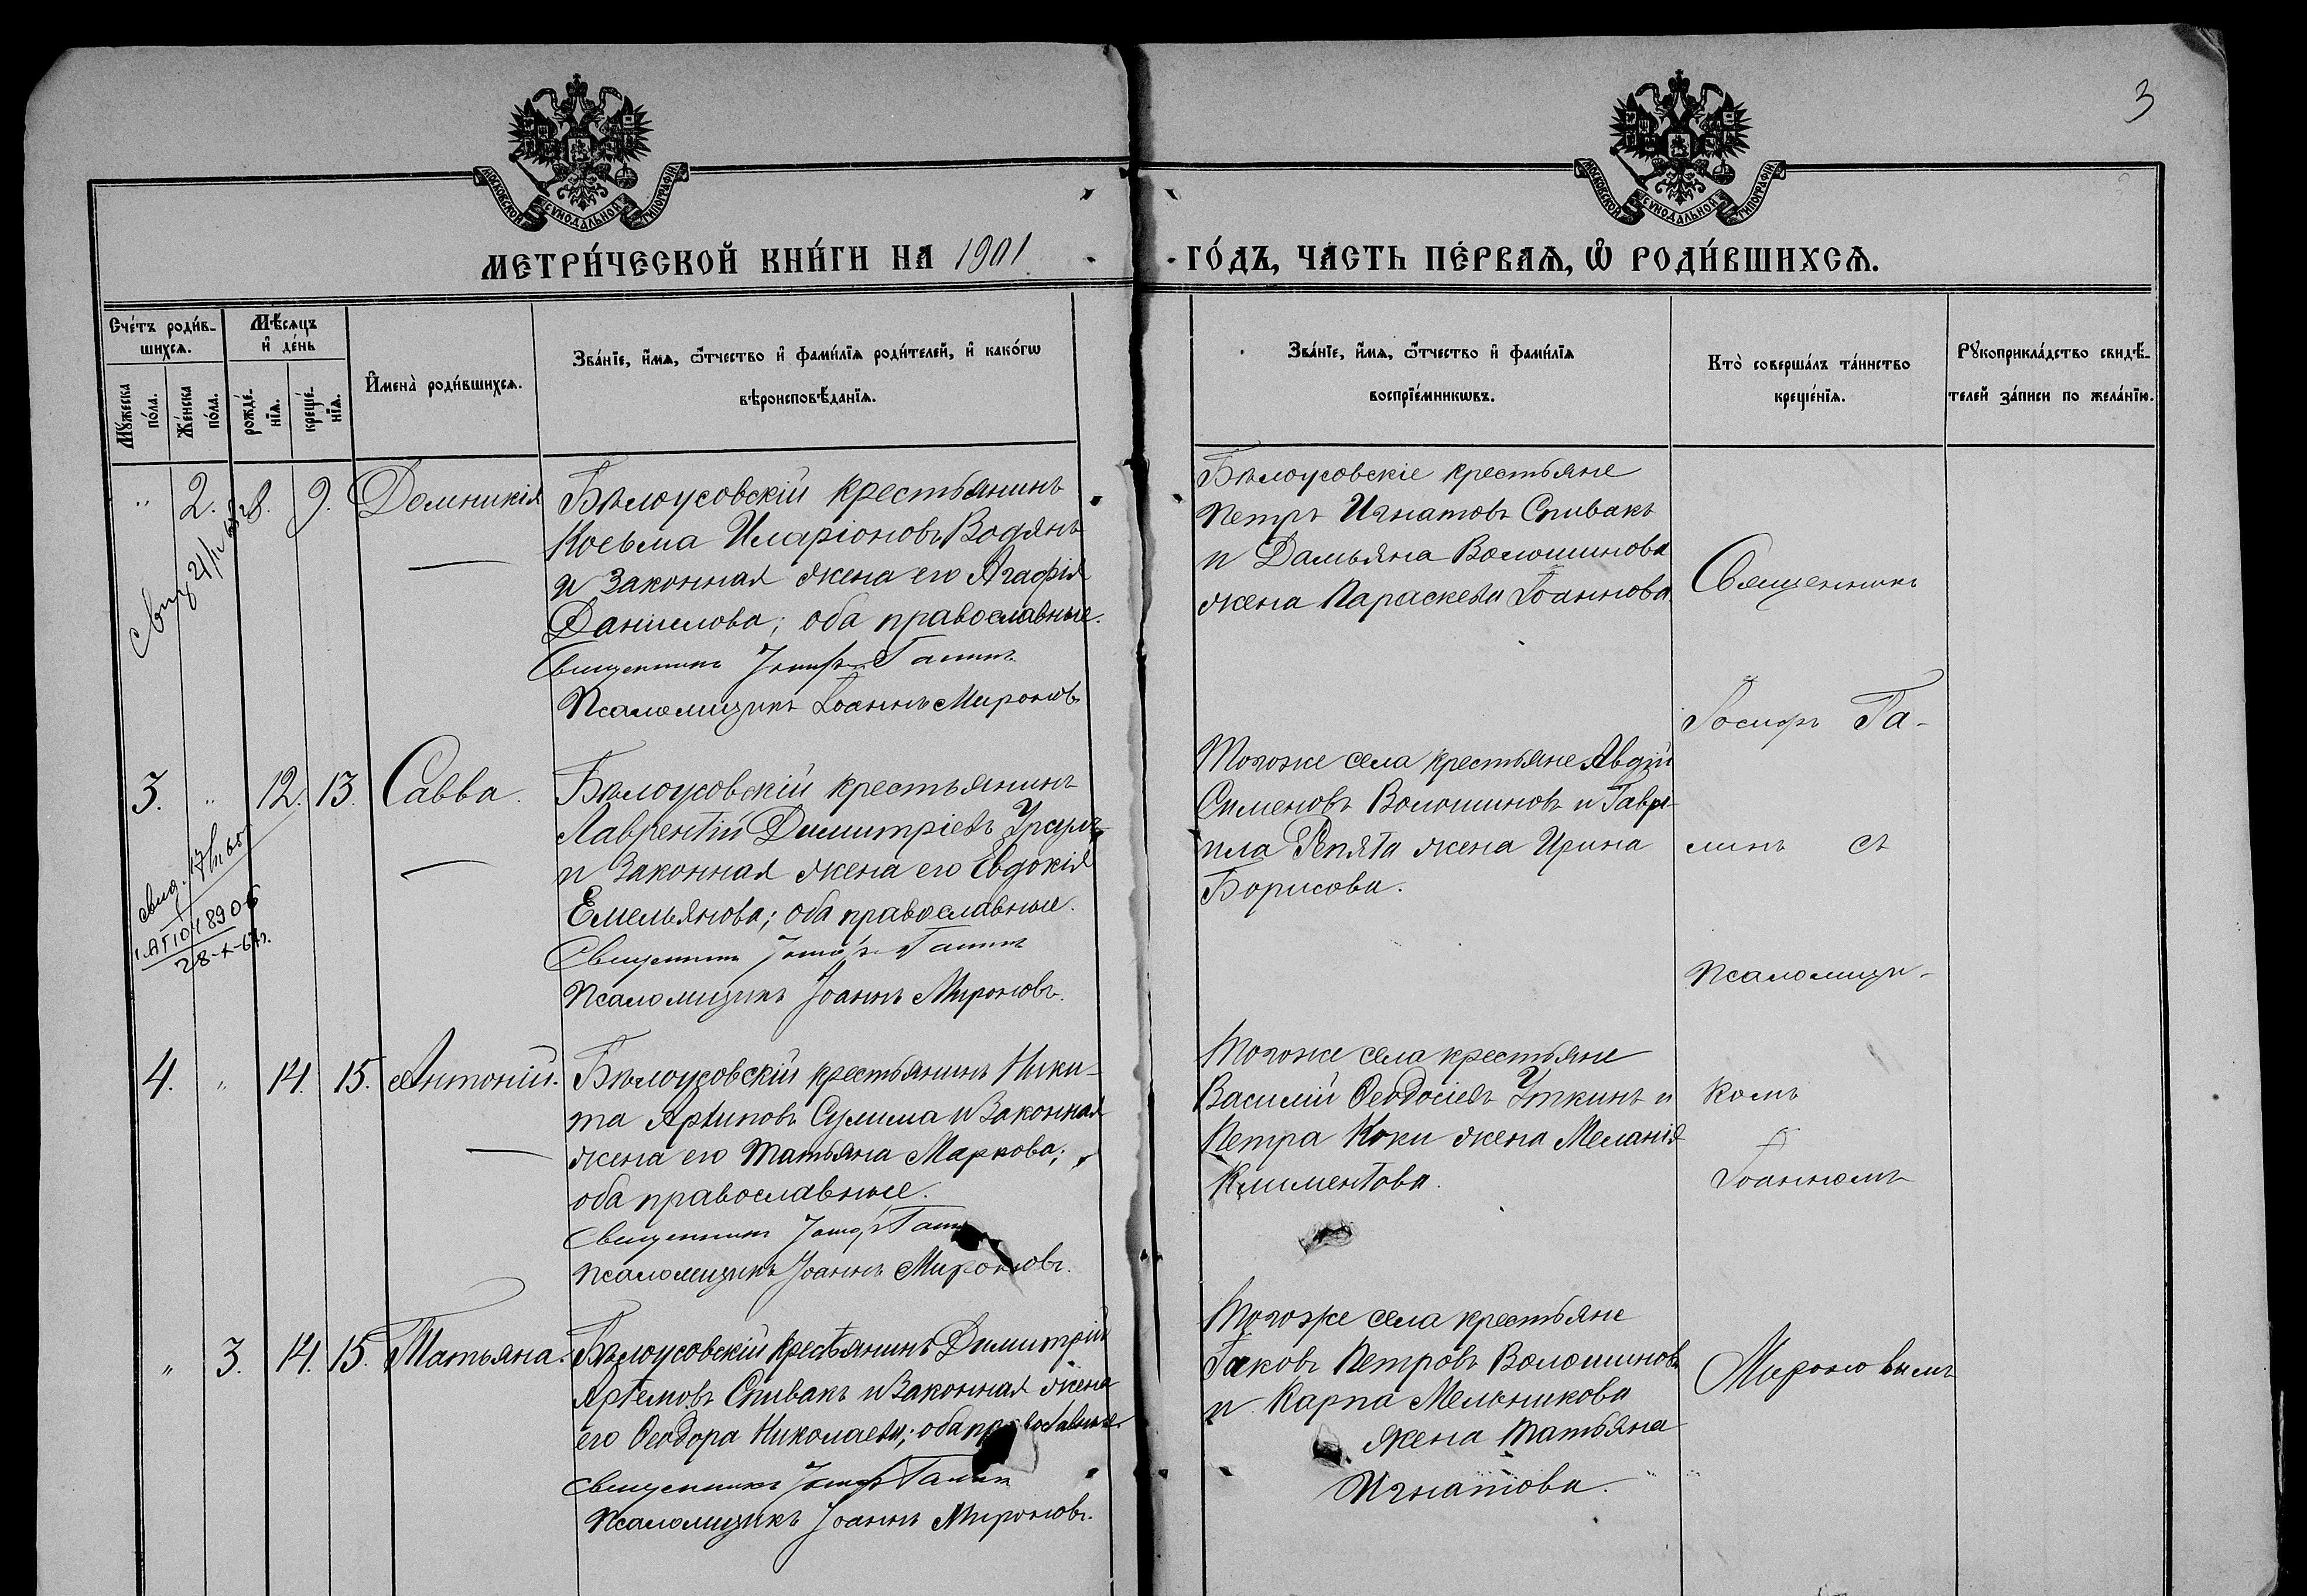 3
МОСКОВСКОЙ СѴНОДАЛЬНОЙ ТИПОГРАФІИ
МОСКОВСКОЙ СѴНОДАЛЬНОЙ ТИПОГРАФІИ
МЕТРИ́ЧЕСКОЙ КНИ́ГИ НА 1901 ГО́ДЪ, ЧА́СТЬ ПЕ́РВАѦ, Ѡ҆ РОДИ́ВШИХСѦ.
Сче́тъ роди́в-
шихсѧ.
Мꙋ́жеска
по́ла.
Же́нска
по́ла.
Мѣ́сѧцъ
и҆ де́нь
рожде́-
нїѧ.
креще́-
нїѧ.
И҆мена̀ роди́вшихсѧ.
Зва́нїе, и҆́мѧ, ѻ҆́тчество и҆ фами́лїѧ роди́телей, и҆ како́гѡ
вѣроисповѣ́данїѧ.
Зва́нїе, и҆́мѧ, ѻ҆́тчество и҆ фами́лїѧ
воспрїе́мникѡвъ.
Кто̀ соверша́лъ та́инство
креще́нїѧ.
Рꙋкоприкла́дство свидѣ́-
телей за́писи по жела́нїю.
" 2. 8. 9. Домникія
Бѣлоусовскій крестьянинъ
Косьма Иларіоновъ Водянъ
и законная жена его Агафія
Даніилова; оба православные.
Священникъ Іосифъ Галинъ
Псаломщикъ Іоаннъ Мироновъ
Бѣлоусовскіе крестьяне
Петръ Игнатовъ Спивакъ
и Дамьяна Волошинова
жена Параскева Іоаннова.
3. " 12. 13. Савва.
свид.
28-X-67г.
Бѣлоусовскій крестьянинъ
Лаврентій Димитріевъ Урсулъ
и законная жена его Евдокія
Емельянова; оба православные.
Священникъ Іосифъ Галинъ
Псаломщикъ Іоаннъ Мироновъ.
Тогоже села крестьяне Авдій
Сименовъ Волошиновъ и Гаврі-
ила Репята жена Ирина
Борисова.
4. " 14. 15. Антоній.
Бѣлоусовскій крестьянинъ Ники-
та Архиповъ Сулима и законная
жена его Татьяна Маркова;
оба православные.
Священникъ Іосифъ
Псаломщикъ Іоаннъ Мироновъ.
Тогоже села крестьяне
Василій Ѳеодосіевъ Уткинъ и
Петра Коки жена Меланія
Климентова.
" 3. 14. 15. Татьяна.
Бѣлоусовскій крестьянинъ Димитрій
Артемовъ Спивакъ и законная жена
его Ѳеодора Николаева; оба православные.
Священникъ Іосифъ Галинъ
Псаломщикъ Іоаннъ Мироновъ.
Тогоже села крестьяне
Іаковъ Петровъ Волошиновъ
и Карпа Мельникова
жена Татьяна
Игнатова.
Священникъ
Іосифъ Га-
линъ съ
псаломщи-
комъ
Іоанномъ
Мироновымъ